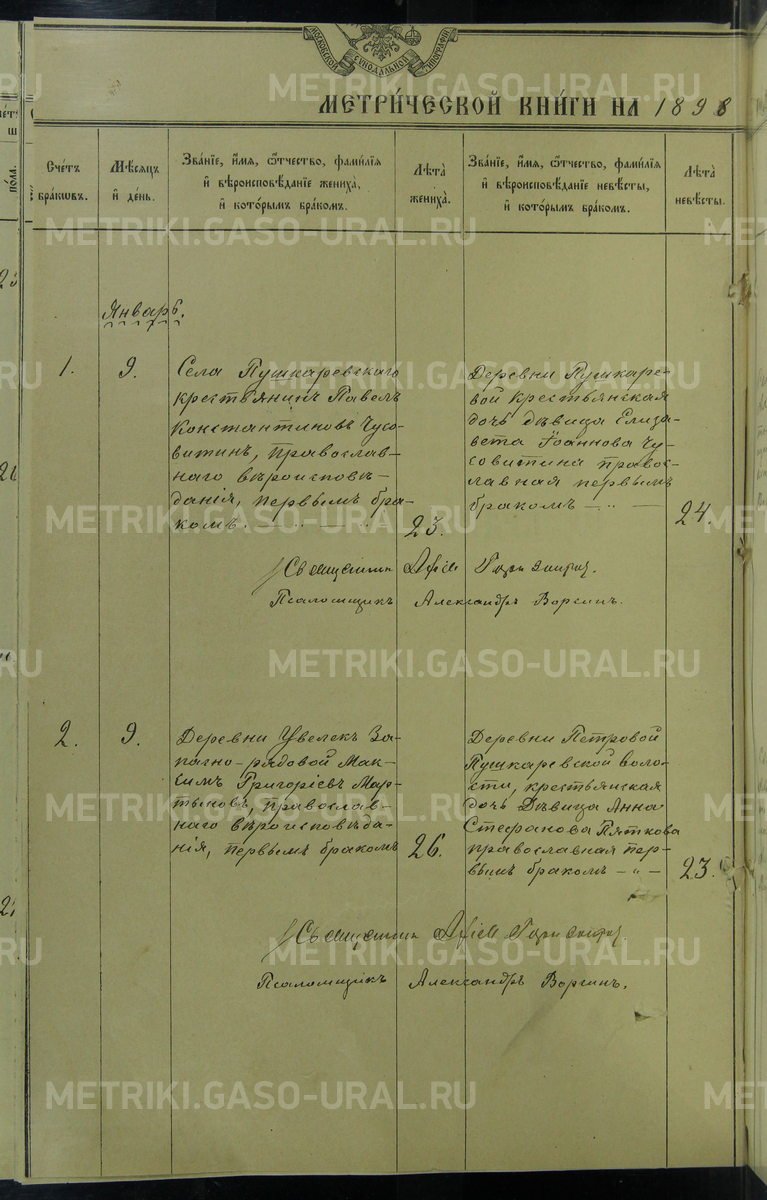 МОСКОВСКОЙ СѴНОДАЛЬНОЙ ТИПОГРАФІИ
МЕТРИ́ЧЕСКОЙ КНИ́ГИ НА 1898
Счéтъ бра́кѡвъ.
Мѣ́сяцъ и҆ де́нь.
Зва́нїе, и҆́мя, ѻ҆́тчество, фами́лїя и҆ вѣроисповѣ́данїе жениха̀, и҆ кото́рымъ бра́комъ.
Лѣта̀ жениха̀.
Зва́нїе, и҆́мя, ѻ҆́тчество, фами́лїя и҆ вѣроисповѣ́данїе невѣ́сты, и҆ кото́рымъ бра́комъ.
Лѣта̀ невѣ́сты.
Январь.
1.
9.
Села Пушкаревскаго
крестьянинъ Павелъ
Константиновъ Чусо-
витинъ, православ-
наго вѣроисповѣ-
данія, первымъ бра-
комъ.
23.
Деревни Пушкаре-
вой крестьянская
дочь дѣвица Елиза-
вета Іоаннова Чу-
совитина правос-
лавная первымъ
бракомъ
24.
Священникъ
Псаломщикъ Александръ Воргинъ.
2.
9.
Деревни Увелекъ За-
пасно-рядовой Мак-
симъ Григоріевъ Мар-
тыновъ, православ-
наго вѣроисповѣда-
нія, первымъ бракомъ
26.
Деревни Петровой
Пушкаревской воло-
сти, крестьянская
дочь Дѣвица Анна
Стефанова Пяткова
православная пер-
вымъ бракомъ
23.
Священникъ
Псаломщикъ Александръ Воргинъ.
METRIKI.GASO-URAL.RU